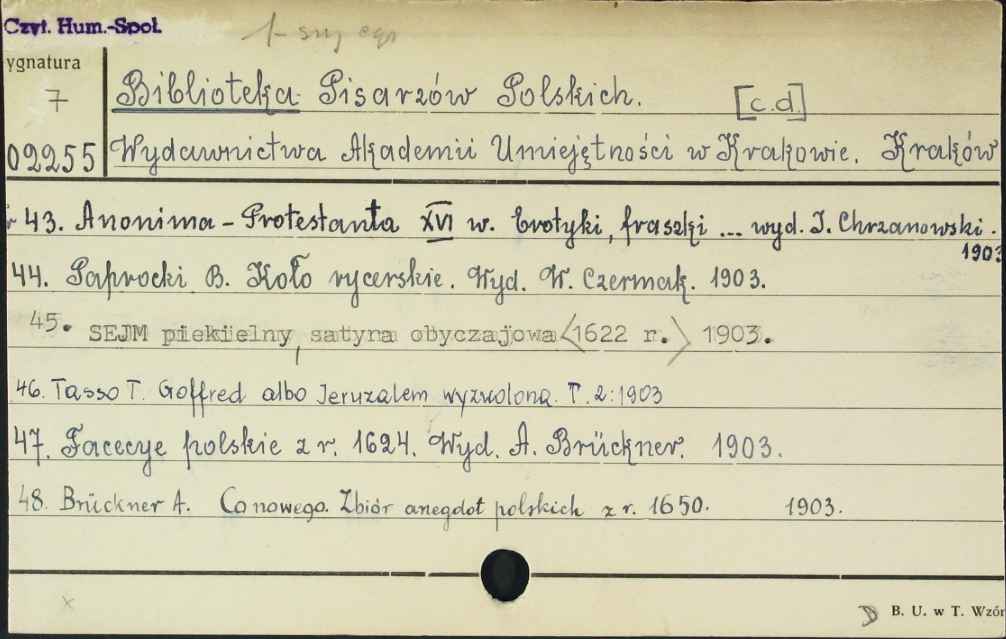 Czyt. Hum.-Społ.
ygnatura
7
Biblioteka Pisarzów Polskich. [c.d]
02255 Wydawnictwa Akademii Umiejętności w Krakowie. Kraków
43. Anonima - Protestanta XVI w. Erotyki, fraszki ... wyd. I. Chrzanowski.
1903
44. Paprocki B. Koło rycerskie. Wyd. W. Czermak. 1903.
45. SEJM piekielny, satyra obyczajowa <1622 r.> 1903.
46. Tasso T. Goffred albo Jeruzalem wyzwolona. T. 2: 1903
47. Facecye polskie z r. 1624. Wyd. A. Brückner. 1903.
48. Brückner A. Co nowego. Zbiór anegdot polskich z r. 1650. 1903.
x
B. U. w T. Wzór